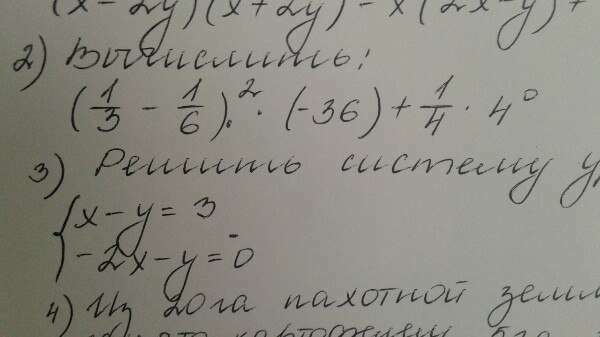 (x-2y)(x+2y)-x(2x-y)+
2) Вычислить:
(1/3 - 1/6)² · (-36) + 1/4 · 4⁰
3) Решить систему
{ x-y=3
-2x-y=0
4) Из 20га пахотной